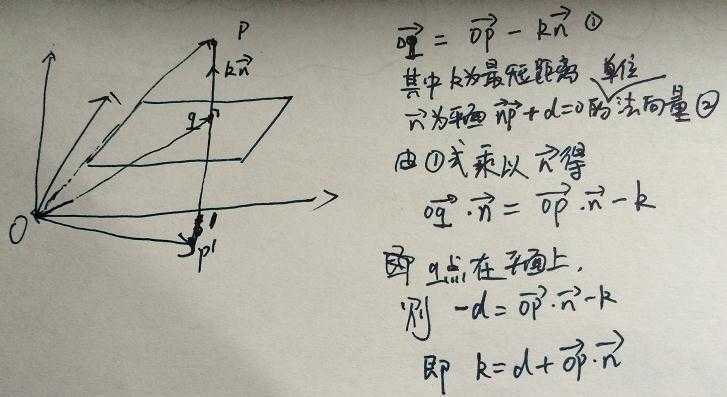 P
kn⃗
q
O
P'
oq⃗ = op⃗ - kn⃗ ①
其中k为最短距离 单位
n⃗为平面 n⃗p⃗+d=0的法向量②
由①式乘以n⃗得
oq⃗·n⃗ = op⃗·n⃗ - k
即 q点在平面上,
则 -d = op⃗·n⃗ - k
即 k = d + op⃗·n⃗